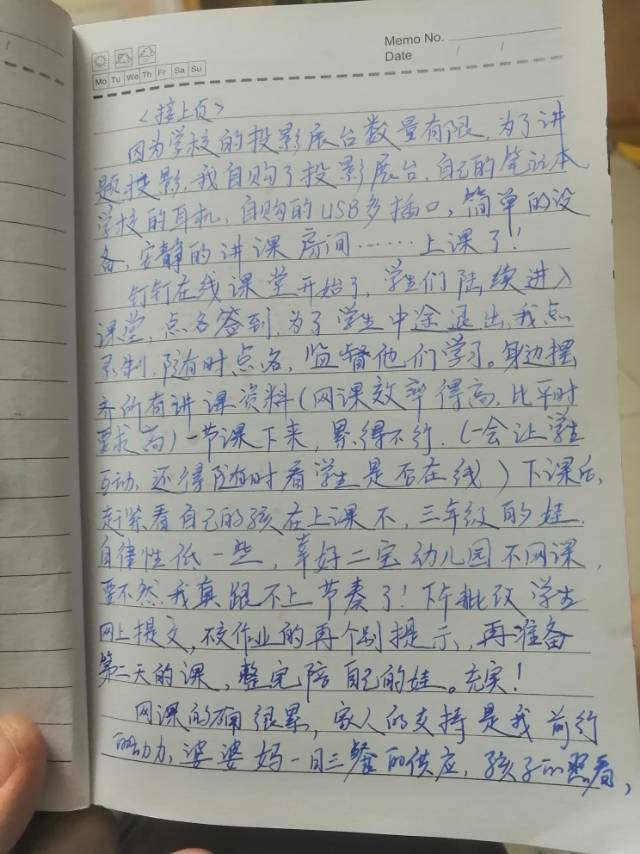 Memo No.
Date / /
Mo Tu We Th Fr Sa Su
<接上页>
因为学校的投影展台数量有限,为了讲
题投影,我自购了投影展台,自己的笔记本,
学校的耳机,自购的USB多插口,简单的设
备,安静的讲课房间……上课了!
钉钉在线课堂开始了,学生们陆续进入
课堂,点名签到,为了学生中途退出,我点
录制,随时点名,监督他们学习。身边摆
齐所有讲课资料(网课效率得高,比平时
要求高)一节课下来,累得不行,(一会让学生
互动,还得随时看学生是否在线)下课后,
赶紧看自己的孩在上课不,三年级的娃,
自律性低一些,幸好二宝幼儿园不网课,
要不然我真跟不上节奏了!下午批改学生
网上提交,不交作业的再个别提示,再准备
第二天的课,整完陪自己的娃。充实!
网课的确很累,家人的支持是我前行
的动力,婆婆妈一日三餐的供应,孩子的照看,